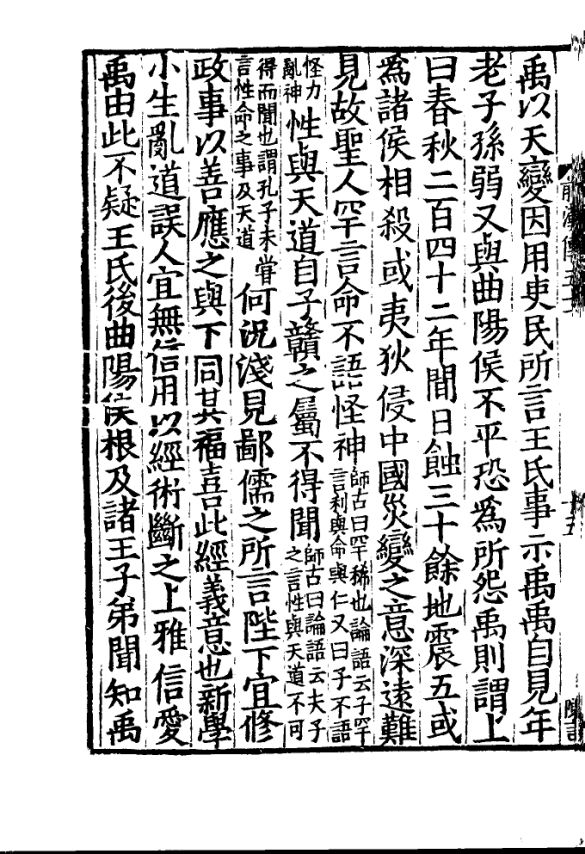 禹以天變因用吏民所言王氏事示禹禹自見年
老子孫弱又與曲陽侯不平恐爲所怨禹則謂上
曰春秋二百四十二年間日蝕三十餘地震五或
爲諸侯相殺或夷狄侵中國災變之意深遠難
見故聖人罕言命不語怪神師古曰罕稀也論語云子罕言利與命與仁又曰子不語
怪力亂神性與天道自子贛之屬不得聞師古曰論語云夫子之言性與天道不可
得而聞也謂孔子未嘗言性命之事及天道何況淺見鄙儒之所言陛下宜修
政事以善應之與下同其福喜此經義意也新學
小生亂道誤人宜無信用以經術斷之上雅信愛
禹由此不疑王氏後曲陽侯根及諸王子弟聞知禹